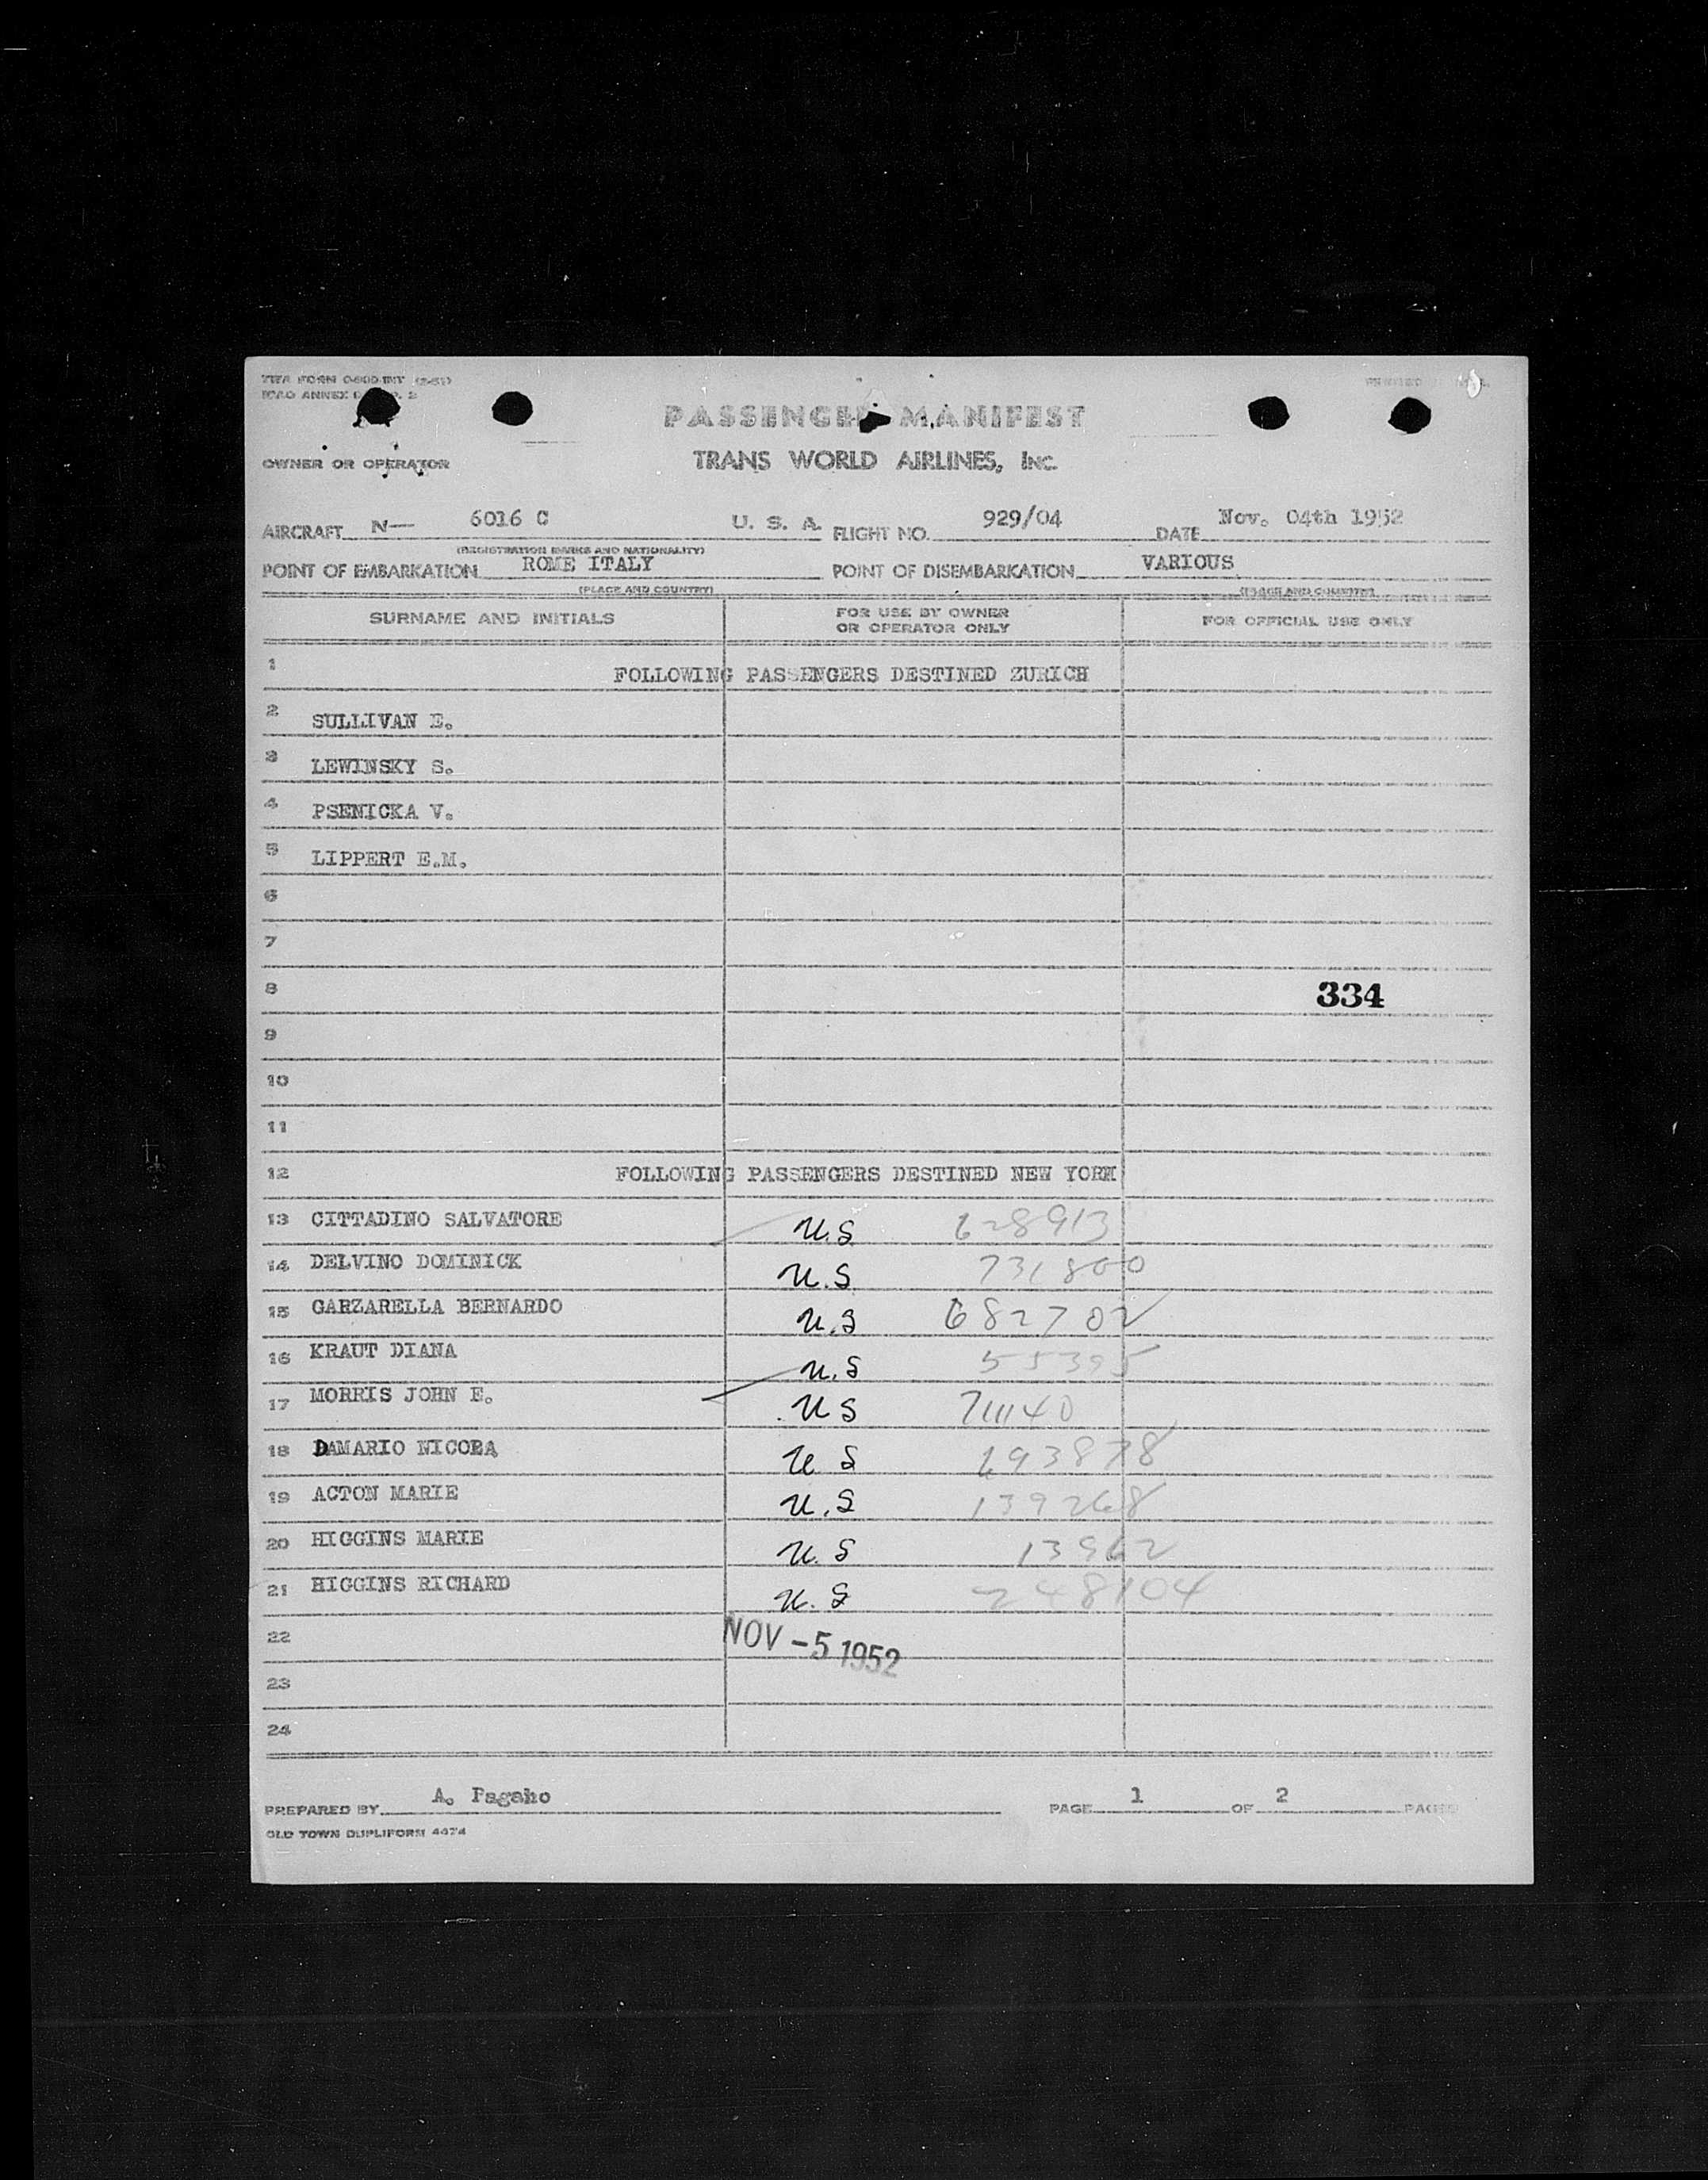 TWA FORM 0-800-INT (2-51)
ICAO ANNEX
PASSENGER MANIFEST
OWNER OR OPERATOR TRANS WORLD AIRLINES, Inc.
AIRCRAFT N— 6016 C U. S. A. FLIGHT NO. 929/04 DATE Nov. 04th 1952
(REGISTRATION MARKS AND NATIONALITY)
POINT OF EMBARKATION ROME ITALY POINT OF DISEMBARKATION VARIOUS
(PLACE AND COUNTRY) (PLACE AND COUNTRY)
SURNAME AND INITIALS FOR USE BY OWNER OR OPERATOR ONLY FOR OFFICIAL USE ONLY
1 FOLLOWING PASSENGERS DESTINED ZURICH
2 SULLIVAN E.
3 LEWINSKY S.
4 PSENICKA V.
5 LIPPERT E.M.
6
7
8 334
9
10
11
12 FOLLOWING PASSENGERS DESTINED NEW YORK
13 CITTADINO SALVATORE U.S 628913
14 DELVINO DOMINICK U.S 731800
15 GARZARELLA BERNARDO U.S 682702
16 KRAUT DIANA U.S 55395
17 MORRIS JOHN E. U S 711140
18 DAMARIO U S 693878
19 ACTON MARIE U.S 139268
20 HIGGINS MARIE U.S 13962
21 HIGGINS RICHARD U.S 248104
22 NOV -5 1952
23
24
PREPARED BY A. Pagaho PAGE 1 OF 2 PAGES
OLD TOWN DUPLIFORM 4474